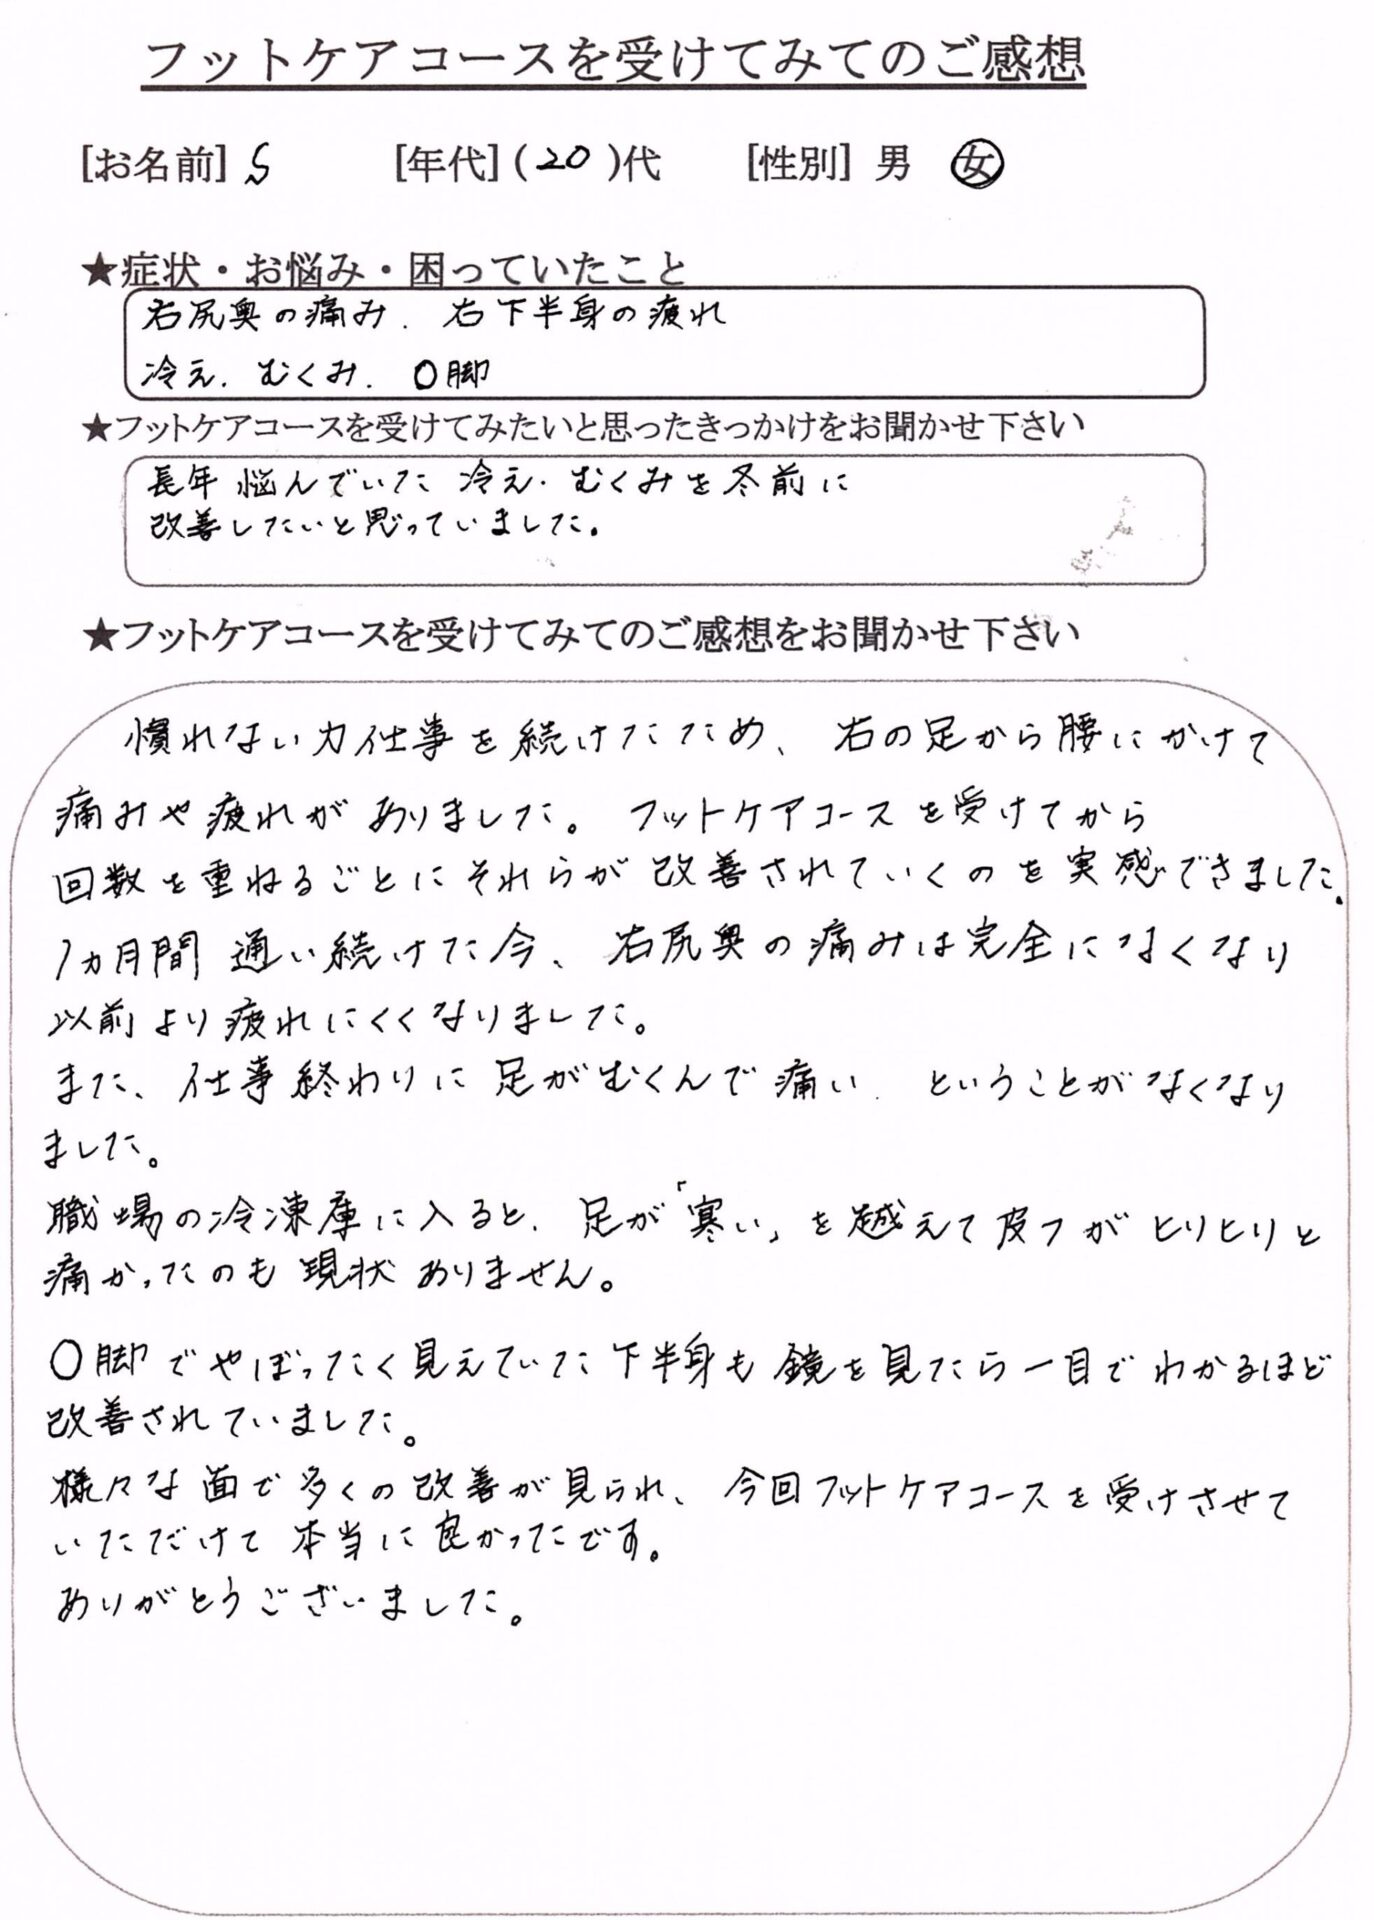 フットケアコースを受けてみてのご感想
[お名前] S [年代] (20)代 [性別] 男 女
★症状・お悩み・困っていたこと
右尻奥の痛み. 右下半身の疲れ
冷え. むくみ. O脚
★フットケアコースを受けてみたいと思ったきっかけをお聞かせ下さい
長年悩んでいた冷え・むくみを冬前に
改善したいと思っていました。
★フットケアコースを受けてみてのご感想をお聞かせ下さい
慣れない力仕事を続けたため、右の足から腰にかけて
痛みや疲れがありました。フットケアコースを受けてから
回数を重ねるごとにそれらが改善されていくのを実感できました。
1ヵ月間通い続けた今、右尻奥の痛みは完全になくなり
以前より疲れにくくなりました。
また、仕事終わりに足がむくんで痛い. ということがなくなり
ました。
職場の冷凍庫に入ると、足が「寒い」を越えて皮フがヒリヒリと
痛かったのも現状ありません。
O脚でやぼったく見えていた下半身も鏡を見たら一目でわかるほど
改善されていました。
様々な面で多くの改善が見られ、今回フットケアコースを受けさせて
いただけて本当に良かったです。
ありがとうございました。